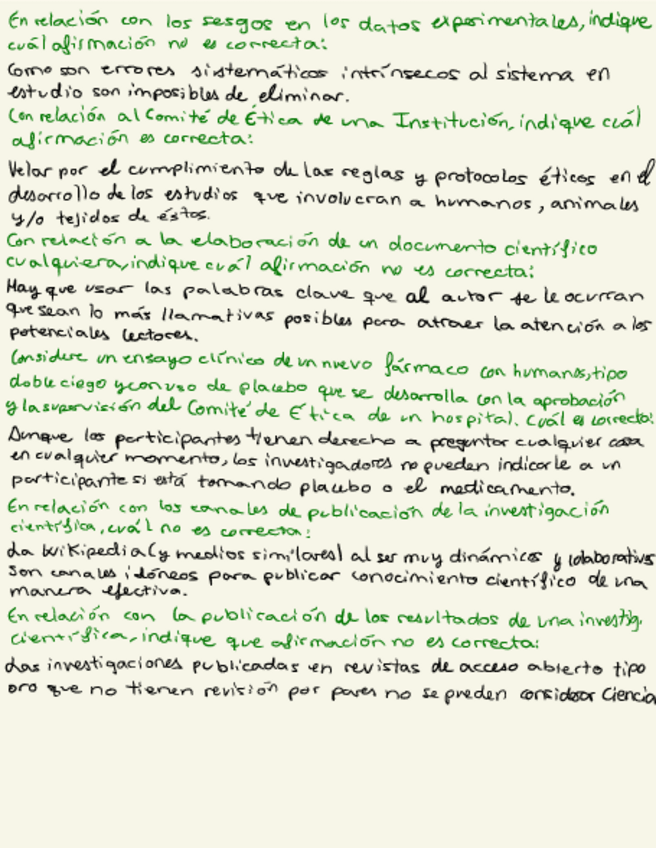 En relación con los sesgos en los datos experimentales, indique
cuál afirmación no es correcta:
Como son errores sistemáticos intrínsecos al sistema en
estudio son imposibles de eliminar.
Con relación al Comité de Ética de una Institución, indique cuál
afirmación es correcta:
Velar por el cumplimiento de las reglas y protocolos éticos en el
desarrollo de los estudios que involucran a humanos, animales
y/o tejidos de éstos.
Con relación a la elaboración de un documento científico
cualquiera, indique cuál afirmación no es correcta:
Hay que usar las palabras clave que al autor se le ocurran
que sean lo más llamativas posibles para atraer la atención a los
potenciales lectores.
Considere un ensayo clínico de un nuevo fármaco con humanos, tipo
doble ciego y con uso de placebo que se desarrolla con la aprobación
y la supervisión del Comité de Ética de un hospital. Cuál es correcta:
Aunque los participantes tienen derecho a preguntar cualquier cosa
en cualquier momento, los investigadores no pueden indicarle a un
participante si está tomando placebo o el medicamento.
En relación con los canales de publicación de la investigación
científica, cuál no es correcta:
La Wikipedia (y medios similares) al ser muy dinámicos y colaborativos
son canales idóneos para publicar conocimiento científico de una
manera efectiva.
En relación con la publicación de los resultados de una investig.
científica, indique que afirmación no es correcta:
Las investigaciones publicadas en revistas de acceso abierto tipo
oro que no tienen revisión por pares no se pueden considerar Ciencia